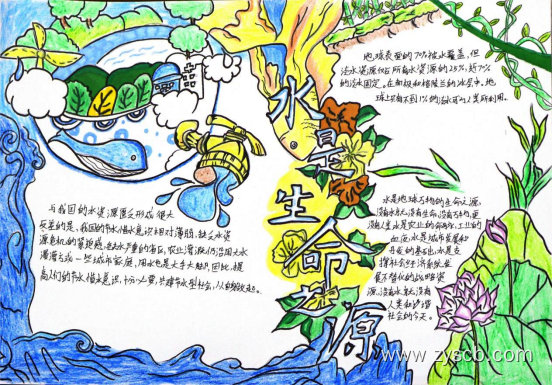 水是生命之源
地球表面的70%被水覆盖,但
淡水资源仅占所有水资源的2.5%,近70%
的淡水固定在南极和格陵兰的冰层中,地
球上只有不到1%的淡水可以人类所利用。
与我国的水资源匮乏形成很大
反差的是,我国的节水惜水意识相对薄弱,缺乏水资
源危机的紧迫感,在缺水严重的当今,农业灌溉仍沿用大水
漫灌方式,一些城市家庭,用水也是大手大脚。因此,提
高人们的节水惜水意识,十分必要,共建节水型社会,从自身做起。
水是地球万物的生命之源,
没有水就没有生命,没有万物,更
没有人类;水是农业的命脉,工业的
血液,水是城市发展和
的基础;水是支
撑社会经济系统发
展不替代的战略资
源,没有水就没有
人类和谐
社会的今天。
www.zyscb.com